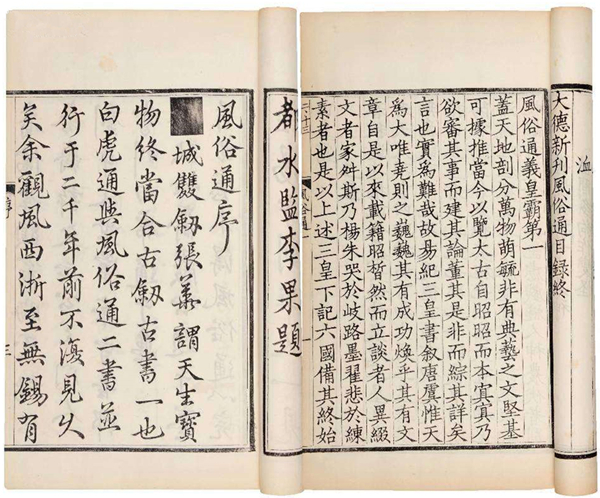 洫
大德新刊風俗通目録終
風俗通義皇霸第一
蓋天地剖分萬物萌毓非有典藝之文堅基
可據推當今以覽太古自昭昭而本冥冥乃
欲審其事而建其論董其是非而綜其詳矣
言也實爲難哉故易紀三皇書叙唐虞惟天
爲大唯堯則之巍巍其有成功煥乎其有文
章自是以來載籍昭晳然而立談者人異綴
文者家舛斯乃楊朱哭於岐路墨翟悲於練
素者也是以上述三皇下記六國備其終始
風俗通
都水監李果題
風俗通序
城雙劔張華謂天生寶
物終當合古劔古書一也
白虎通與風俗通二書並
行于二千年前不復見久
矣余觀風西浙至無錫有
序